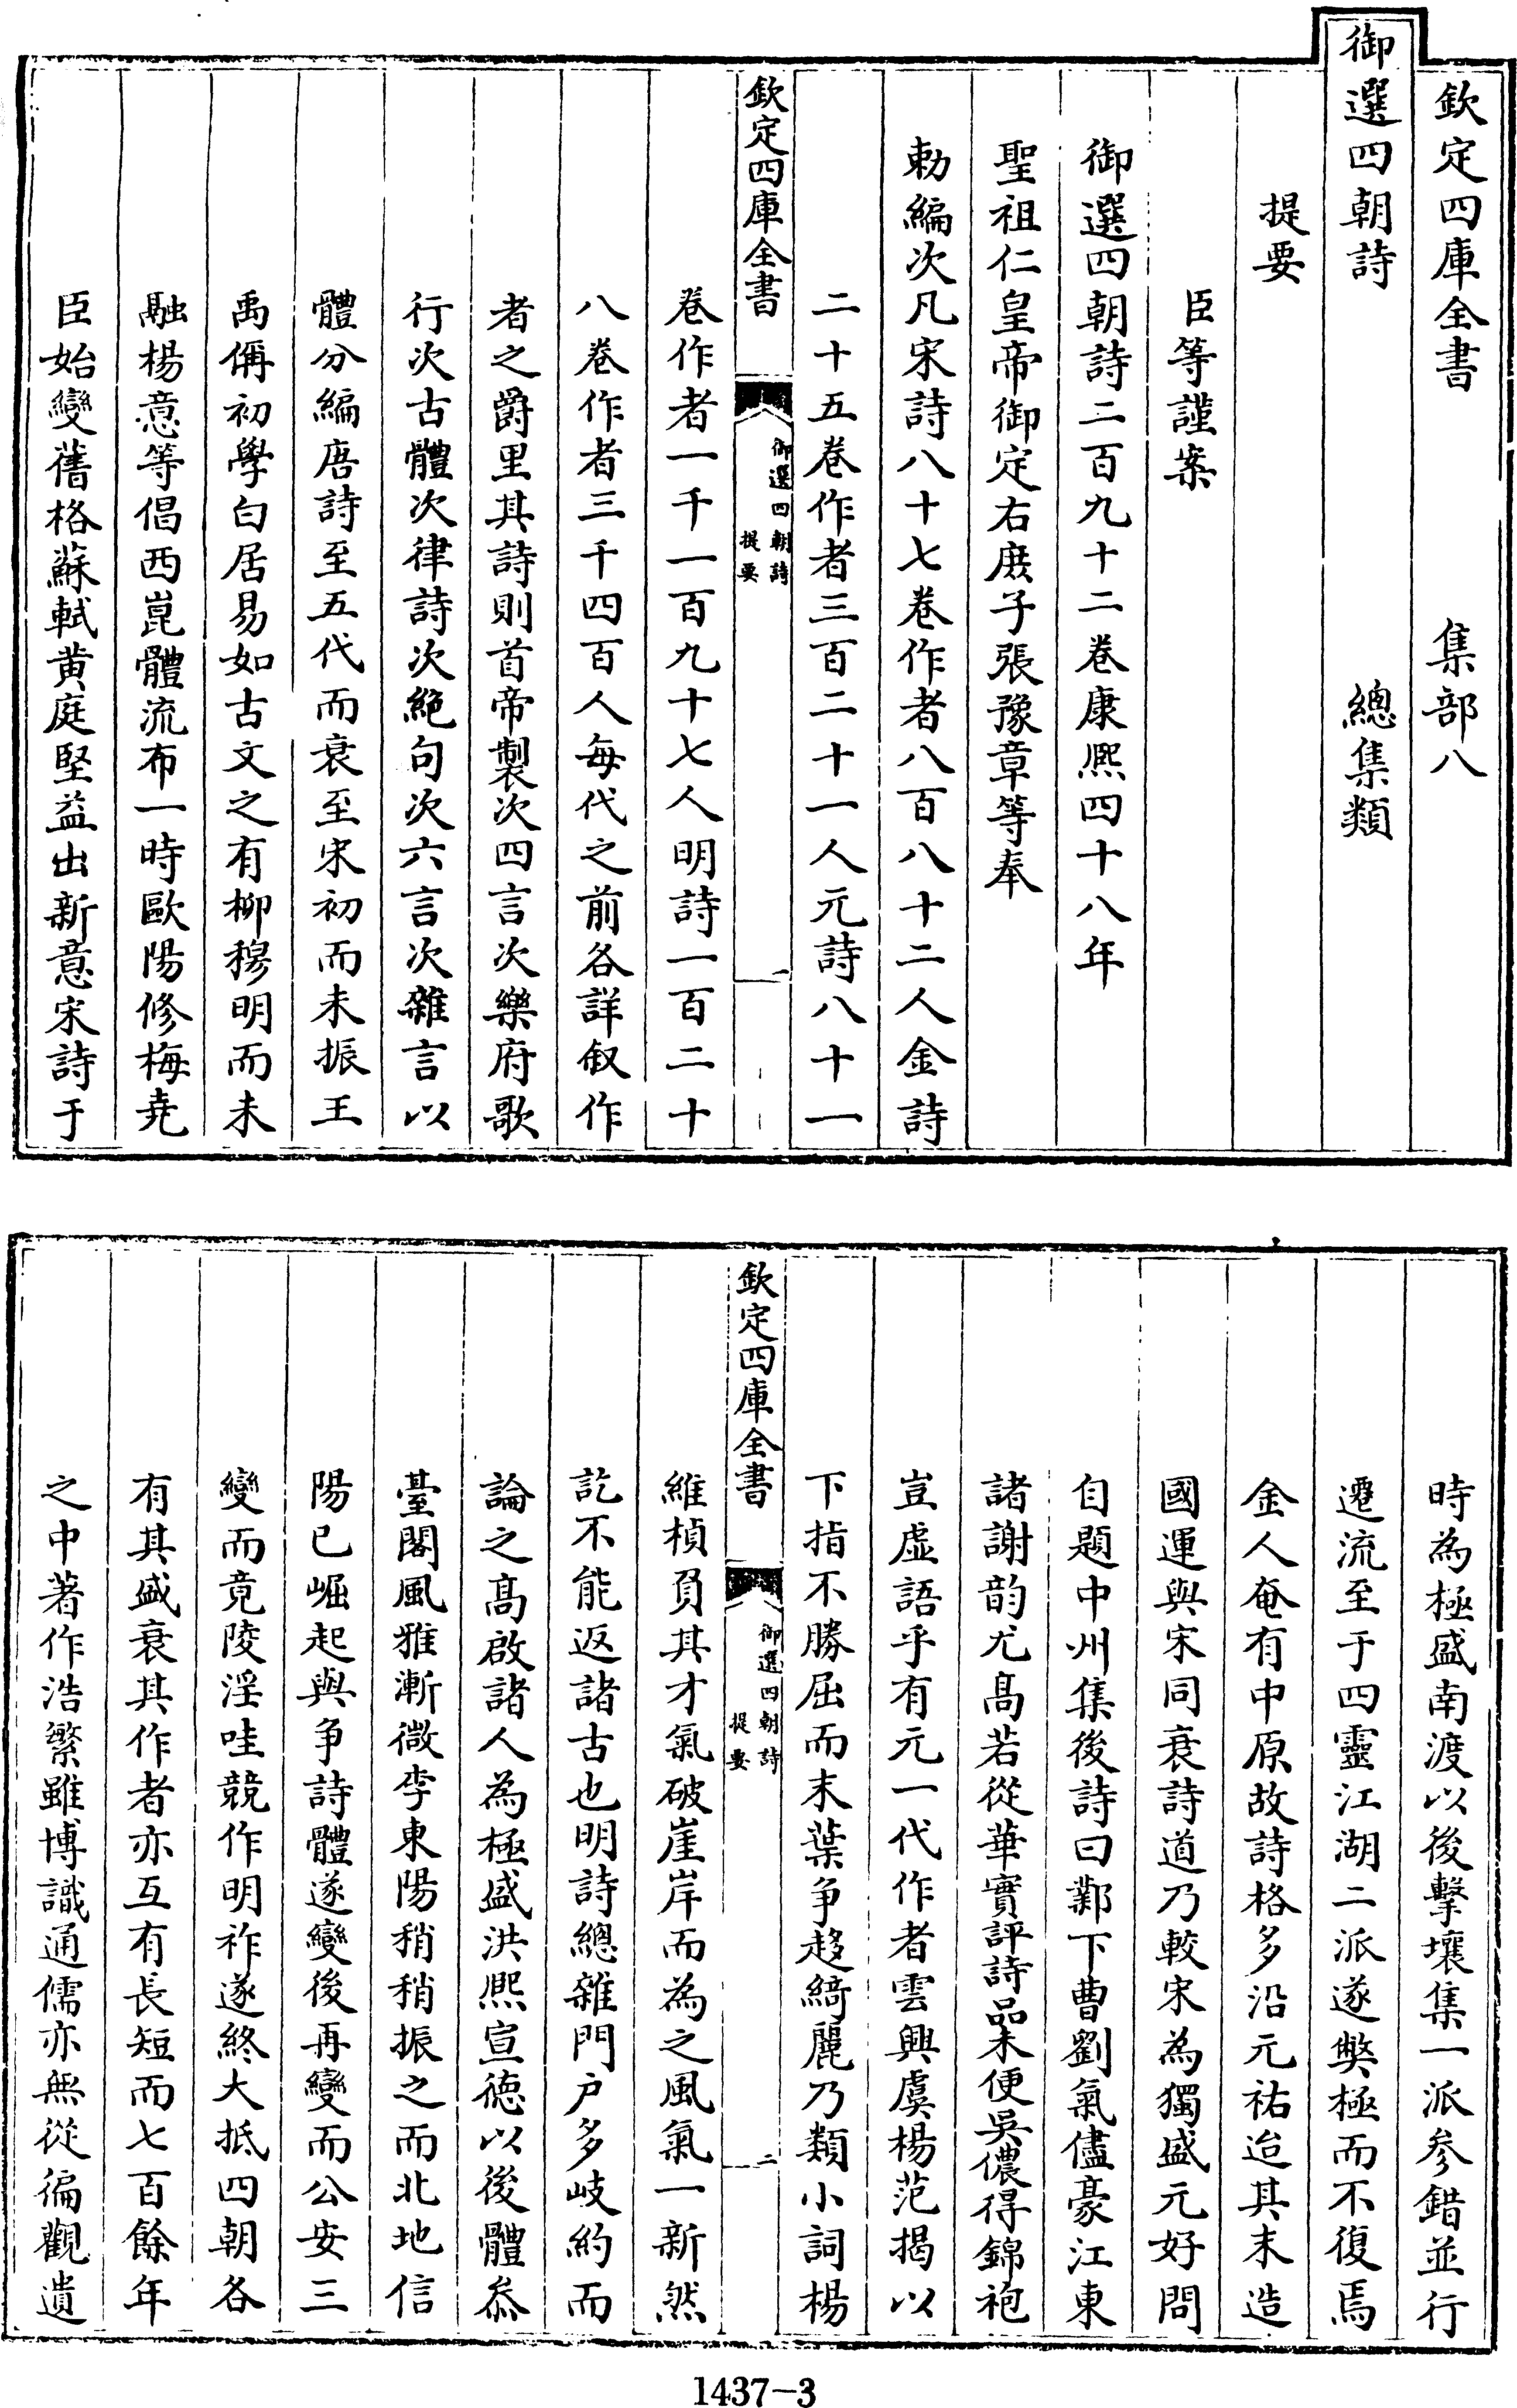 欽定四庫全書　集部八
御選四朝詩　總集類
提要
臣等謹案
御選四朝詩二百九十二卷康熙四十八年
聖祖仁皇帝御定右庶子張豫章等奉
勅編次凡宋詩八十七卷作者八百八十二人金詩
二十五卷作者三百二十一人元詩八十一
欽定四庫全書　御選四朝詩提要　一
卷作者一千一百九十七人明詩一百二十
八卷作者三千四百人每代之前各詳叙作
者之爵里其詩則首帝製次四言次樂府歌
行次古體次律詩次絶句次六言次雜言以
體分編唐詩至五代而衰至宋初而未振王
禹偁初學白居易如古文之有柳穆明而未
融楊億等倡西崑體流布一時歐陽修梅堯
臣始變舊格蘇軾黄庭堅益出新意宋詩于
時為極盛南渡以後擊壤集一派參錯並行
遷流至于四靈江湖二派遂弊極而不復焉
金人奄有中原故詩格多沿元祐迨其末造
國運與宋同衰詩道乃較宋為獨盛元好問
自題中州集後詩曰鄴下曹劉氣儘豪江東
諸謝韵尤高若從華實評詩品未便吳儂得錦袍
豈虚語乎有元一代作者雲興虞楊范揭以
下指不勝屈而末葉争趨綺麗乃類小詞楊
欽定四庫全書　御選四朝詩提要　二
維楨負其才氣破崖岸而為之風氣一新然
訖不能返諸古也明詩總雜門户多岐約而
論之高啟諸人為極盛洪熙宣德以後體叅
臺閣風雅漸微李東陽稍稍振之而北地信
陽已崛起與争詩體遂變後再變而公安三
變而竟陵淫哇競作明祚遂終大抵四朝各
有其盛衰其作者亦互有長短而七百餘年
之中著作浩繁雖博識通儒亦無從徧觀遺
1437-3